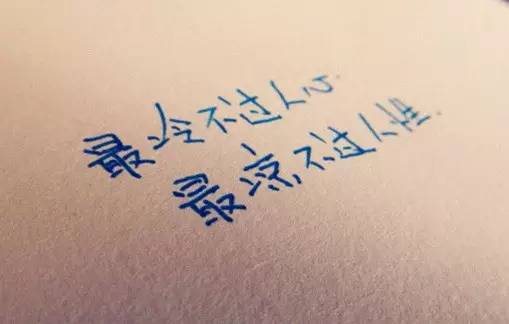 最冷不过人心.
最凉不过人性.